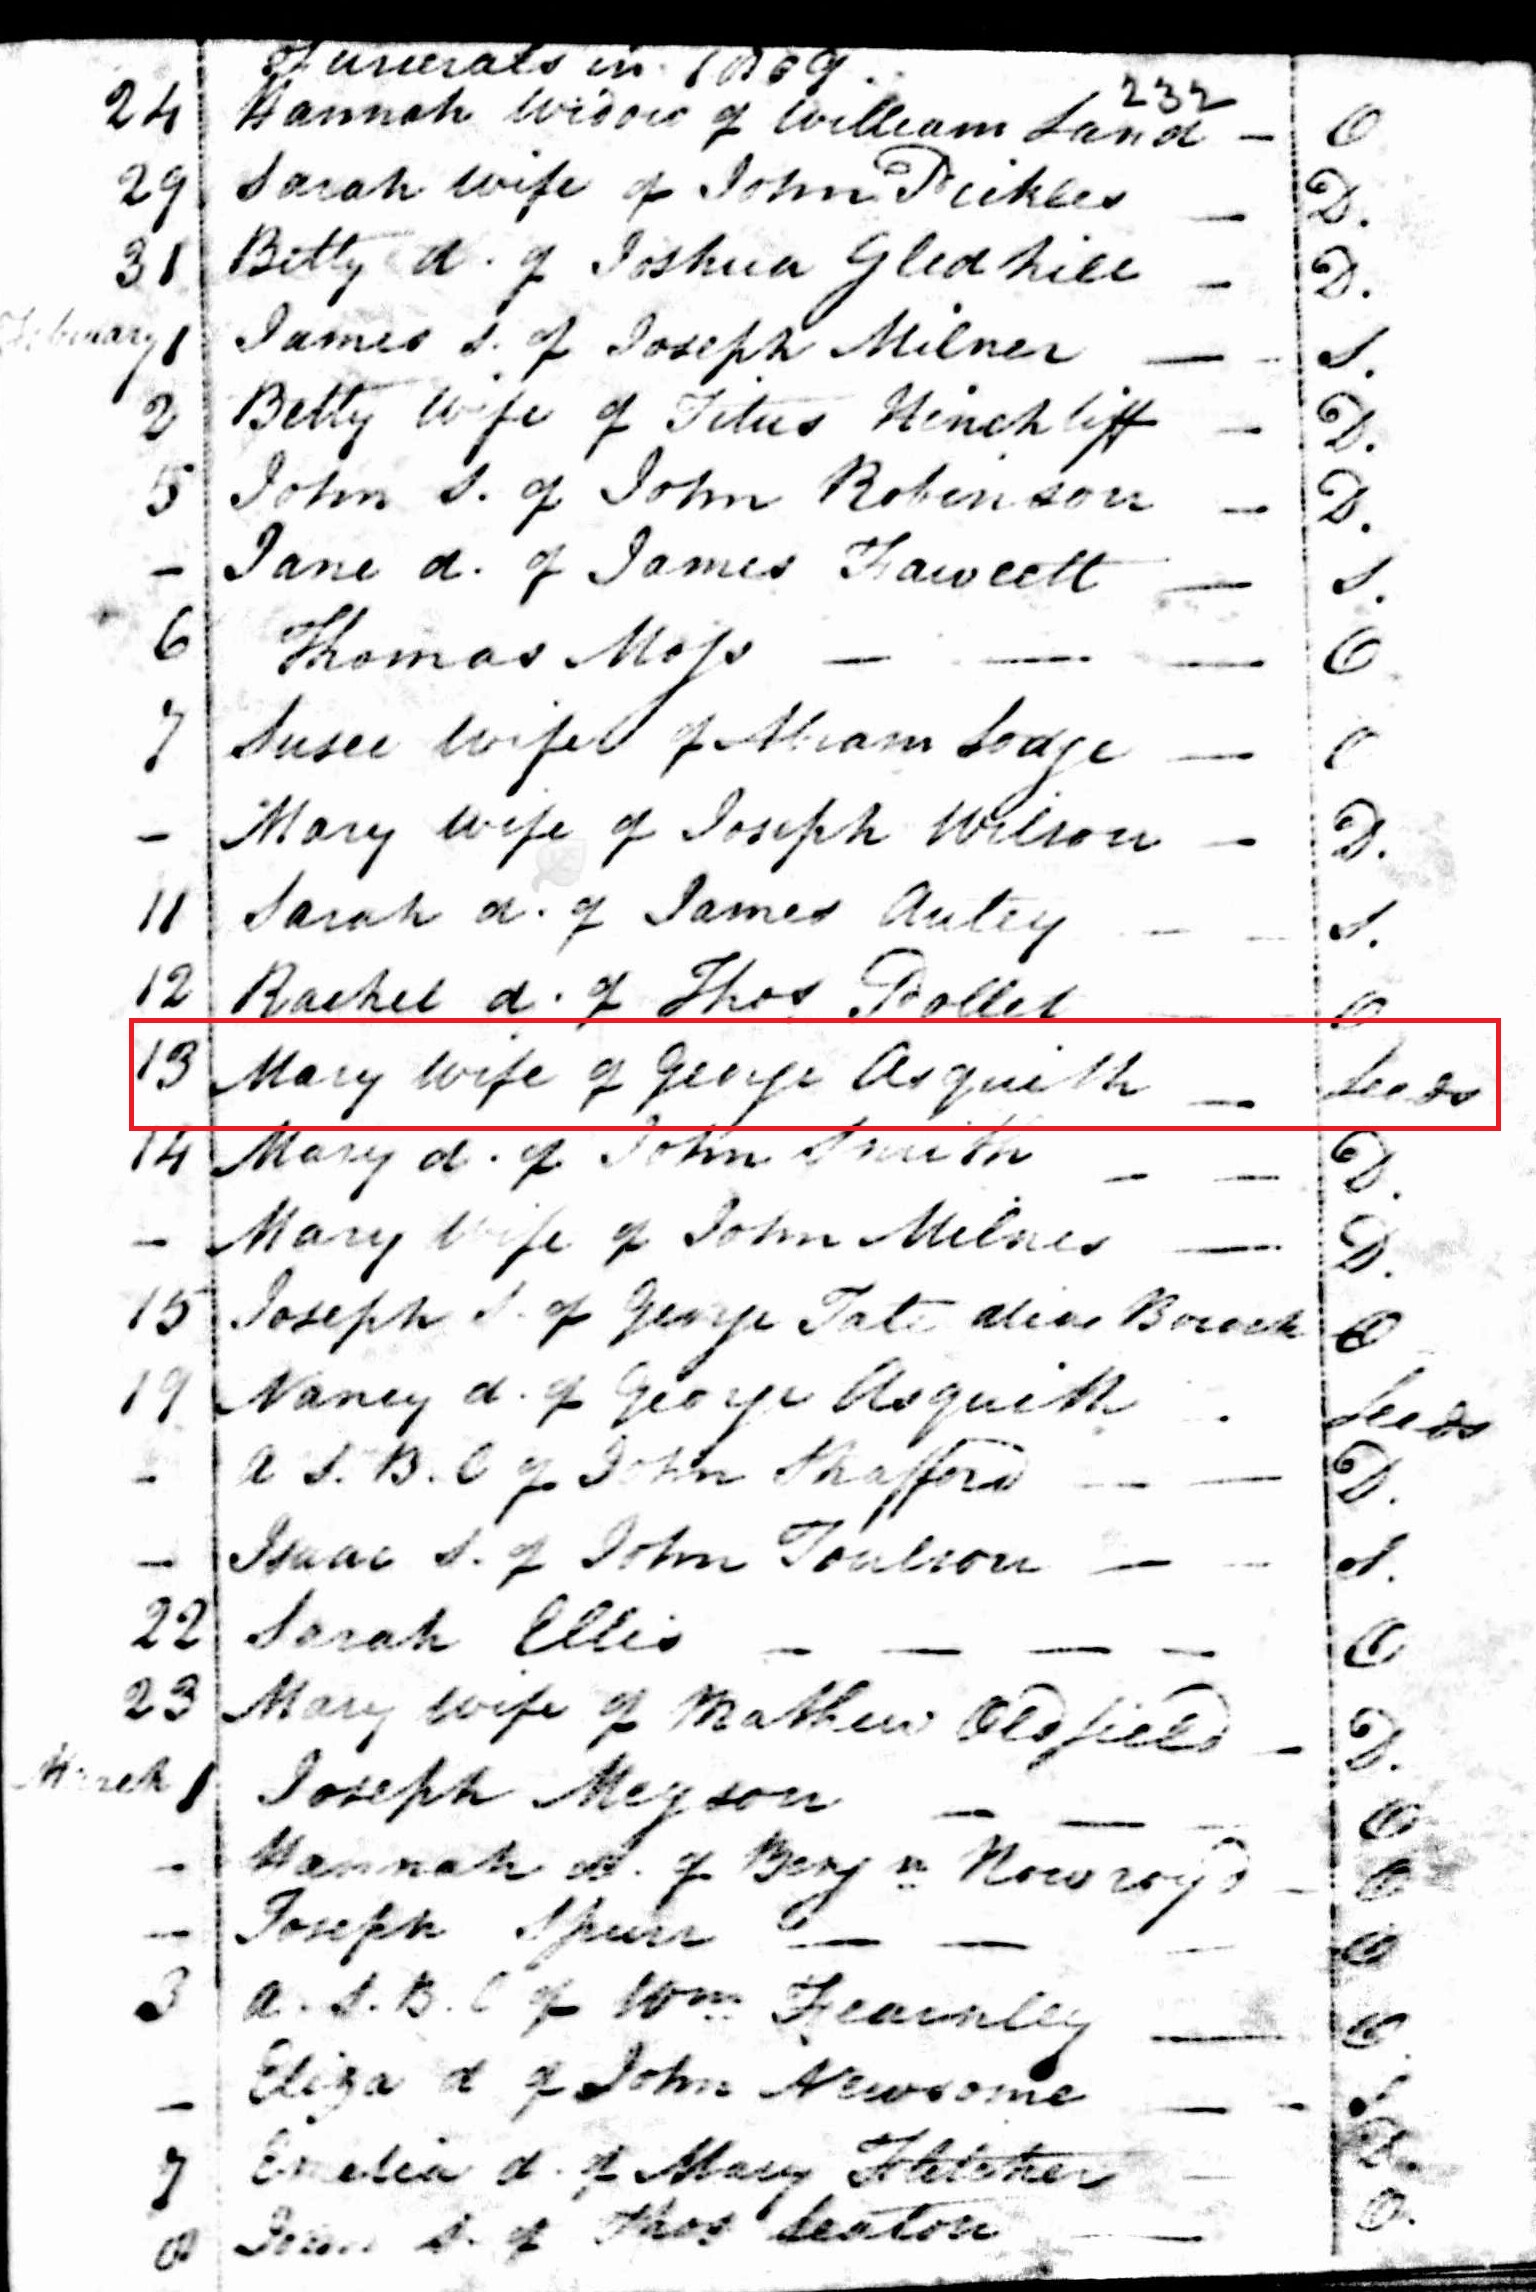 Funerals in 1809.
232
24 Hannah Widow of William Land - O
29 Sarah wife of John Pickles - D.
31 Betty d. of Joshua Gledhill - D.
February 1 James s. of Joseph Milner - - S.
2 Betty wife of Titus Hinchliff - D.
5 John S. of John Robinson - D.
- Jane d. of James Fawcett - S.
6 Thomas Moss - - - O
7 Susee wife of Abram Lodge - O
- Mary wife of Joseph Wilson - D.
11 Sarah d. of James Autey - - S.
12 Rachel d. of Thos Pollet - - O
13 Mary wife of George Asquith - Leeds
14 Mary d. of John Smith - - D.
- Mary wife of John Milnes - D.
15 Joseph S. of George Tate alias O
19 Nancy d. of George Asquith . Leeds
- A S. B. C of John Shafford - - D.
- Isaac S. of John Toulson - - S.
22 Sarah Ellis - - - - O
23 Mary wife of Mathew Oldfield - D.
March 1 Joseph Meyson - - - O
- Hannah d. of Benjn Nowroyd - O
- Joseph Spurr - - - O
3 A. S. B. C of Wm Fearnley - O.
- Eliza d of John Newsome - - S
7 Emelia d. of Mary Fletcher - D.
8 S. of Thos Seaton - O.